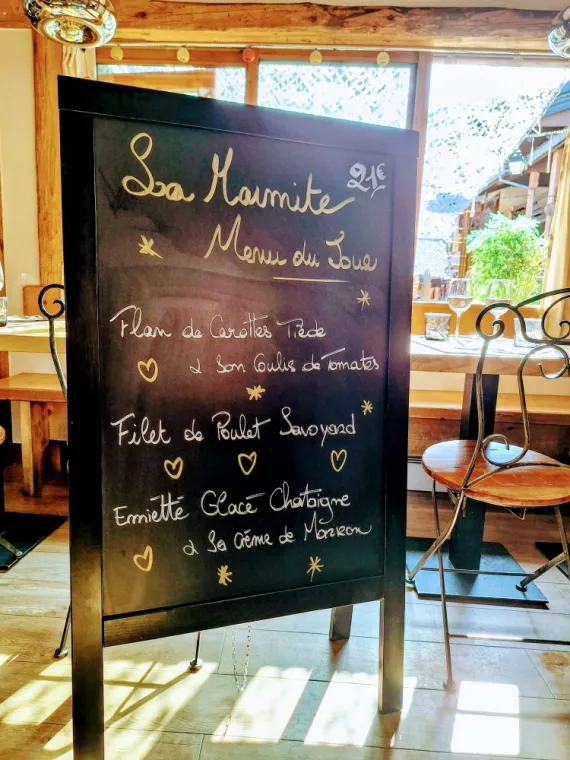 La Marmite 21€
Menu du Jour
Flan de Carottes Tiède
& Son Coulis de Tomates
Filet de Poulet Savoyard
Emietté Glacé Chataigne
& Sa Crème de Marron